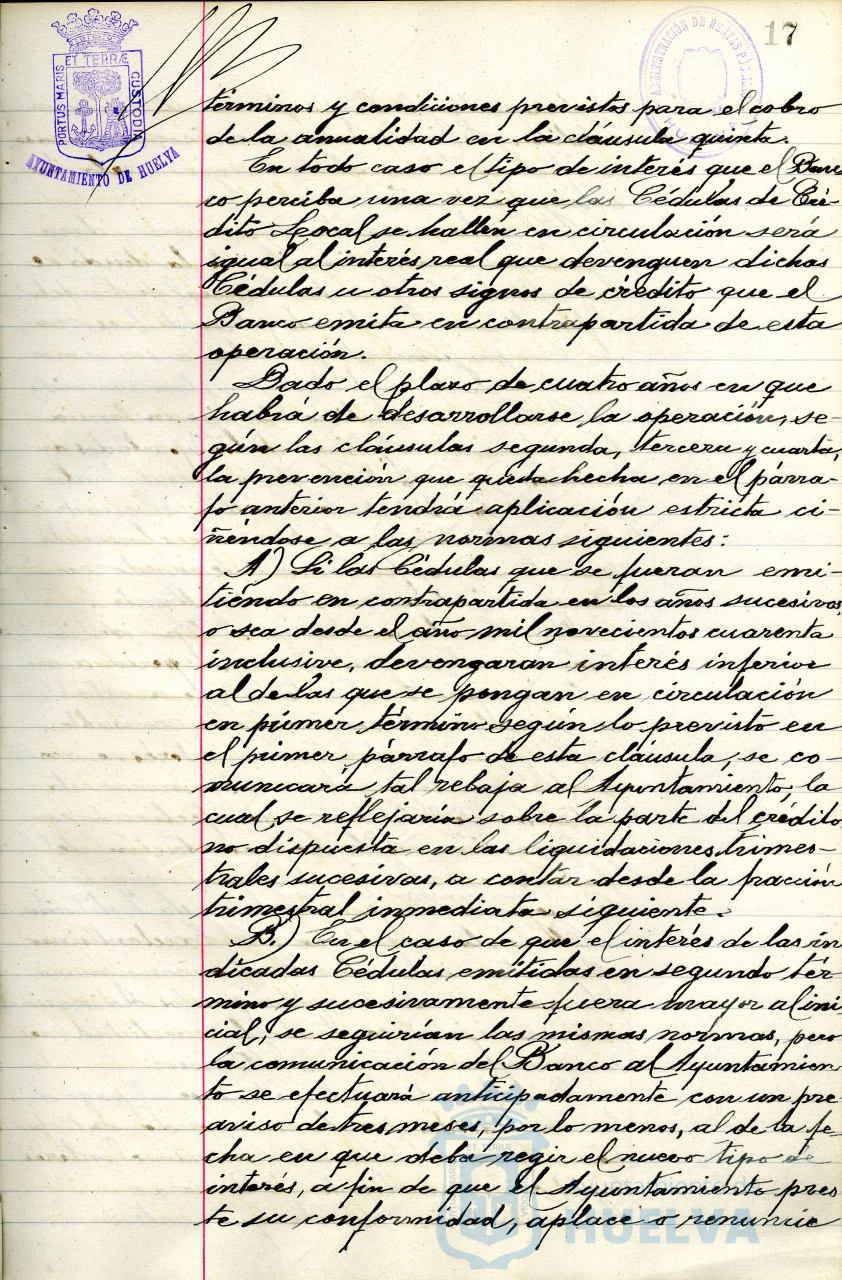 17
PORTUS MARIS
ET TERRÆ
CUSTODIA
AYUNTAMIENTO DE HUELVA
ADMINISTRACIÓN DE RENTAS PÚBLICAS
términos y condiciones previstos para el cobro
de la anualidad en la cláusula quinta.
En todo caso el tipo de interés que el Ban-
co perciba una vez que las Cédulas de Cré-
dito Local se hallen en circulación será
igual al interés real que devenguen dichas
Cédulas u otros signos de crédito que el
Banco emita en contrapartida de esta
operación.
Dado el plazo de cuatro años en que
habrá de desarrollarse la operación, se-
gún las cláusulas segunda, tercera y cuarta,
la prevención que queda hecha en el párra-
fo anterior tendrá aplicación estricta ci-
ñéndose a las normas siguientes:
A) Si las Cédulas que se fueran emi-
tiendo en contrapartida en los años sucesivos,
o sea desde el año mil novecientos cuarenta
inclusive, devengaran interés inferior
al de las que se pongan en circulación
en primer término según lo previsto en
el primer párrafo de esta cláusula, se co-
municará tal rebaja al Ayuntamiento, la
cual se reflejaría sobre la parte del crédito
no dispuesta en las liquidaciones trimes-
trales sucesivas, a contar desde la fracción
trimestral inmediata siguiente.
B.) En el caso de que el interés de las in
dicadas Cédulas emitidas en segundo tér-
mino y sucesivamente fuera mayor al ini
cial, se seguirían las mismas normas, pero
la comunicación del Banco al Ayuntamien-
to se efectuará anticipadamente con un pre
aviso de tres meses, por lo menos, al de la fe-
cha en que deba regir el nuevo tipo de
interés, a fin de que el Ayuntamiento pres
te su conformidad, aplace o renuncie
HUELVA